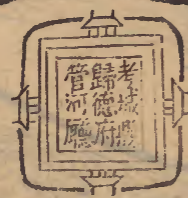 考城縣
歸德府
管河廳